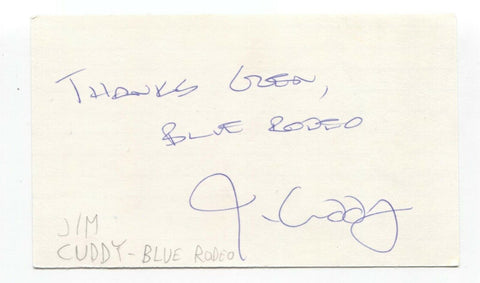 THANKS GLEN,
BLUE RODEO
J. Cuddy
JIM
CUDDY - BLUE RODEO